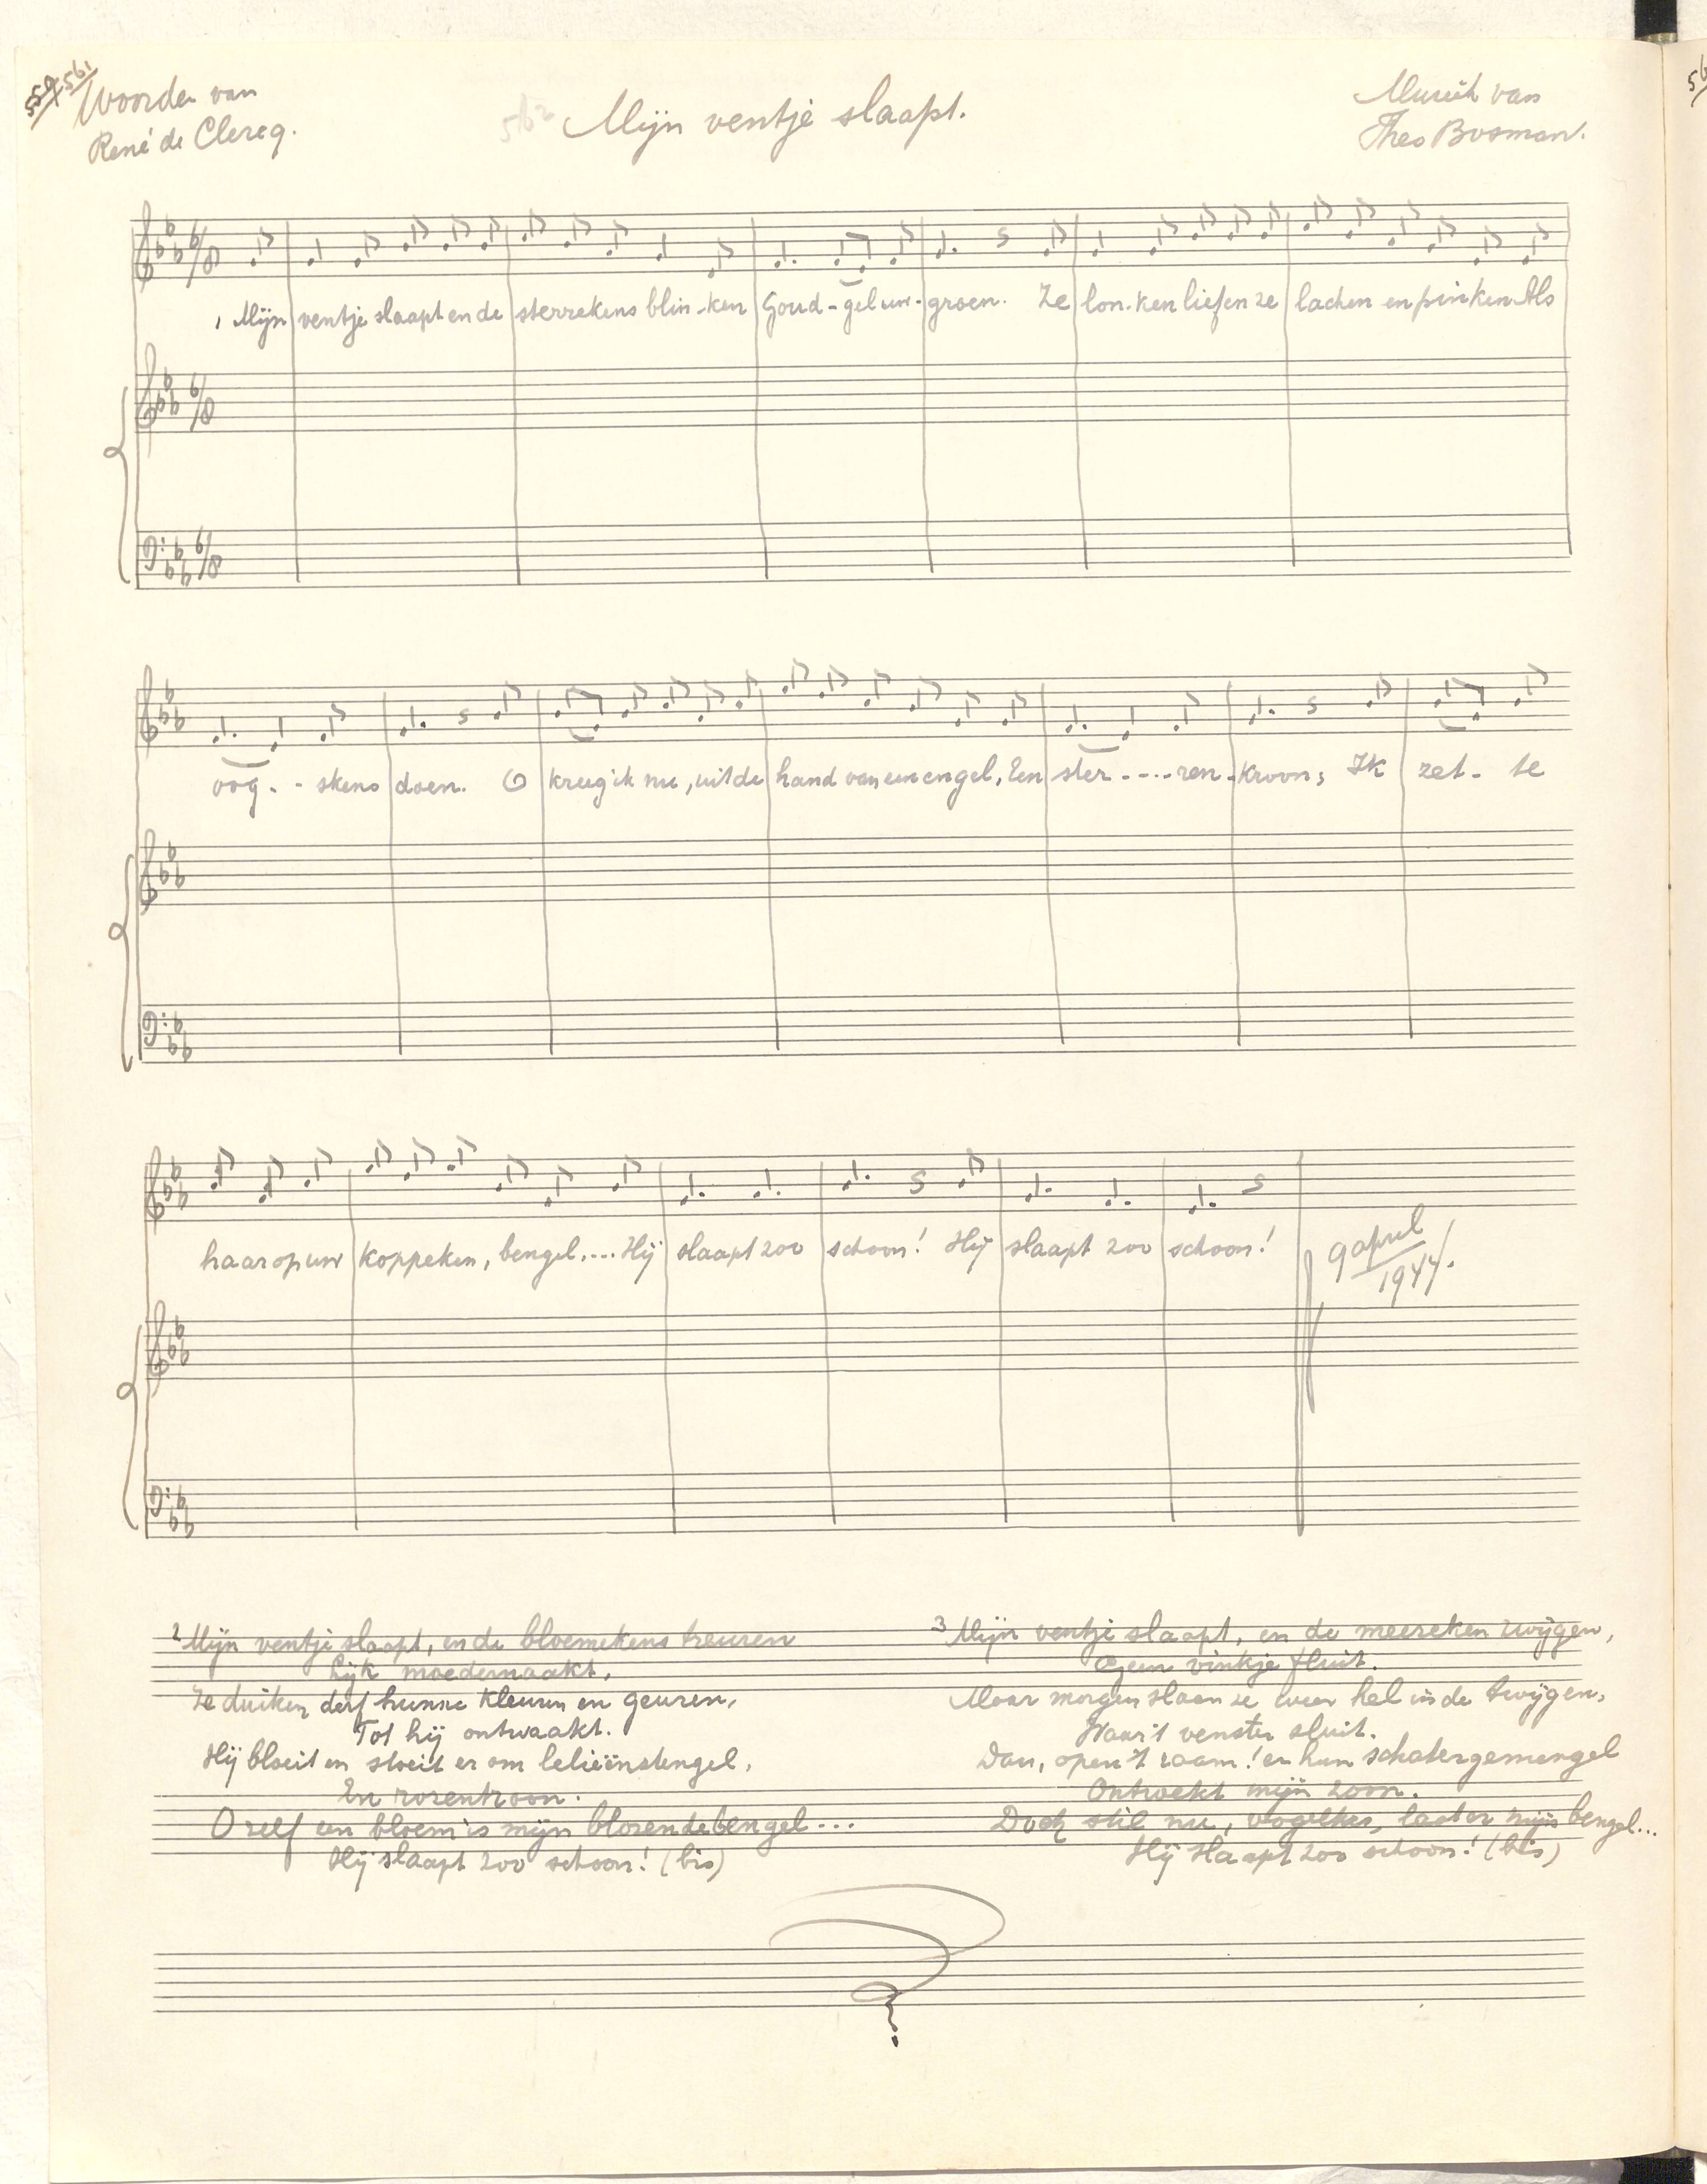 559 561
Woorden van
René de Clercq.
562
Mijn ventje slaapt.
Muziek van
Theo Bosman.
1 Mijn ventje slaapt en de sterrekens blin-ken Goud-geluw-groen. Ze lon-ken lief en ze lachen en pinken Als
oog - - skens doen. O kreeg ik nu, uit de hand van een engel, Een ster - - - - ren-kroon; Ik zet - te
haar op uw koppeken, bengel.... Hij slaapt zoo schoon! Hij slaapt zoo schoon!
9 april
1944.
2 Mijn ventje slaapt, en de bloemekens treuren
Lijk moedernaakt,
Ze duiken derf hunne kleuren en geuren,
Tot hij ontwaakt.
Hij bloeit en stoeit er om lelieënstengel,
En rozentroon.
O zelf een bloem is mijn blozende bengel...
Hij slaapt zoo schoon! (bis)
3 Mijn ventje slaapt, en de meezeken zwijgen,
Geen vinkje fluit.
Maar morgen slaan ze weer hel in de twijgen,
Waar 't venster sluit.
Dan, open 't raam! en hun schatergemengel
Ontwekt mijn zoon.
Doch stil nu, vogelkes, laat er mijn bengel...
Hij slaapt zoo schoon! (bis)